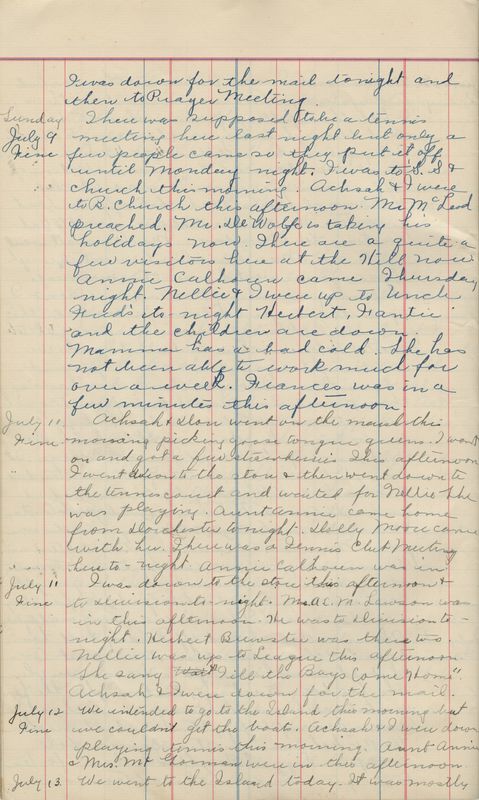 I was down for the mail tonight and
then to Prayer Meeting.
Sunday There was supposed to be a tennis
July 9 meeting here last night but only a
Fine few people came so they put it off
until Monday night. I was to S. S &
Church this morning. Achsah & I were
to B. Church this afternoon. Mr McLeod
preached. Mr. De Wolfe is taking his
holidays now. There are a quite a
few visitors here at the Hill now.
Annie Calhoun came Thursday
night. Nellie & I were up to Uncle
Fred's to night Herbert, Fantie
and the children are down.
Mamma has a bad cold. She has
not been able to work much for
over a week. Frances was in a
few minutes this afternoon
July 11 Achsah & Don went on the marsh this
Fine morning picking goose tongue greens. I went
on and got a few strawberries This afternoon
I went down to the store & then went down to
the tennis court and waited for Nellie. She
was playing. Aunt Annie came home
from Dorchester tonight. Dolly Moore came
with her. There was a Tennis Club Meeting
here to-night. Annie Calhoun was in
July 11 I was down to the store this afternoon &
Fine to Division to-night. Mr. A. M. Lawson was
in this afternoon. He was to Division to-
night. Herbert Brewster was there too.
Nellie was up to League this afternoon
She sang Wait "Till the Boys Come Home".
Achsah & I were down for the mail.
July 12 We intended to go to the Island this morning but
Fine we couldn't get the boats. Achsah & I were down
playing tennis this morning. Aunt Annie
& Mrs. Mc Gorman were in this afternoon.
July 13. We went to the Island today. It was mostly